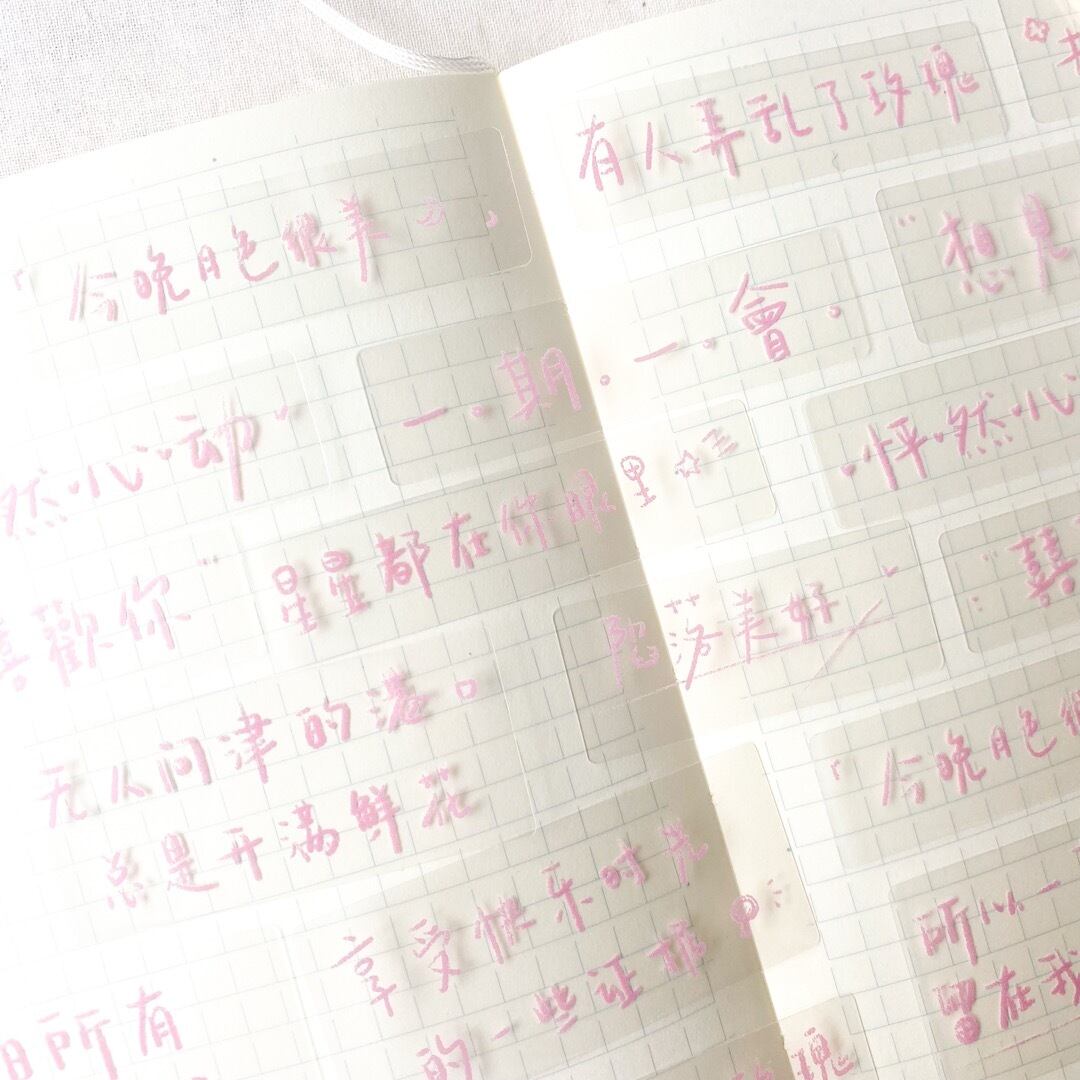 「今晚月色很美
有人弄乱了玫瑰
"想見
然·心·动"
一·期·一·會·
·怦·然·心
歡你"
星星都在你眼里☆彡
"喜
陷落美好
无人问津的港口。
总是开满鲜花
「今晚月色很
享受快乐时光
的一些证据
所以一
留在我
所有
玫瑰